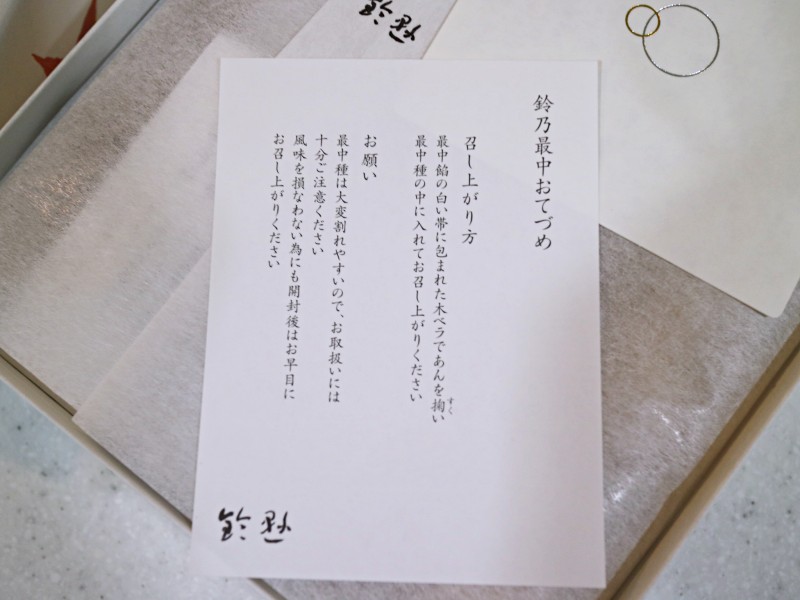 鈴乃最中おてづめ
召し上がり方
最中餡の白い帯に包まれた木ベラであんを掬い
すく
最中種の中に入れてお召し上がりください
お願い
最中種は大変割れやすいので、お取扱いには
十分ご注意ください
風味を損なわない為にも開封後はお早目に
お召し上がりください